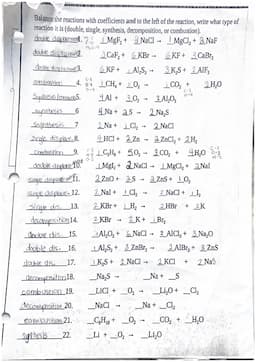 Balance the reactions with coefficients and to the left of the reaction, write what type of
reaction it is (double, single, synthesis, decomposition, or combustion).
double displacement 1. 1 MgF₂ + NaCl → 1 MgCl₂ + 2 NaF
double displacement 2. 3 CaF₂ + 6 KBr → 6 KF + 3 CaBr₂
double displacement 3. 6 KF + 1 Al₂S₃ → 3 K₂S + 2 AlF₃
combustion 4. 1 CH₄ + 2 O₂ → 1 CO₂ + 2 H₂O
5. 4 Al + 3 O₂ → 2 Al₂O₃
synthesis 6. 4 Na + 2 S → 2 Na₂S
synthesis 7. 2 Na + 1 Cl₂ → 2 NaCl
single displace. 8. 4 HCl + 2 Zn → 2 ZnCl₂ + 2 H₂
combustion 9. 1 C₃H₈ + 5 O₂ → 3 CO₂ + 4 H₂O
double displace 10. 1 MgF₂ + 2 NaCl → 1 MgCl₂ + 2 NaF
single displace 11. 2 ZnO + 2 S → 2 ZnS + 1 O₂
single displace 12. 2 NaI + 1 Cl₂ → 2 NaCl + 1 I₂
single dis. 13. 2 KBr + 1 H₂ → 2 HBr + 2 K
decomposition 14. 2 KBr → 2 K + 1 Br₂
double dis. 15. Al₂O₃ + 6 NaCl → 2 AlCl₃ + 3 Na₂O
double dis. 16. 1 Al₂S₃ + 3 ZnBr₂ → 2 AlBr₃ + 3 ZnS
double dis. 17. 1 K₂S + 2 NaCl → 2 KCl + Na₂S
decomposition 18. _Na₂S → _Na + _S
combustion 19. _LiCl + _O₂ → _Li₂O + _Cl₂
decomposition 20. _NaCl → _Na + _Cl₂
combustion 21. + _O₂ → _CO₂ + _H₂O
synthesis 22. _Li + _O₂ → _Li₂O